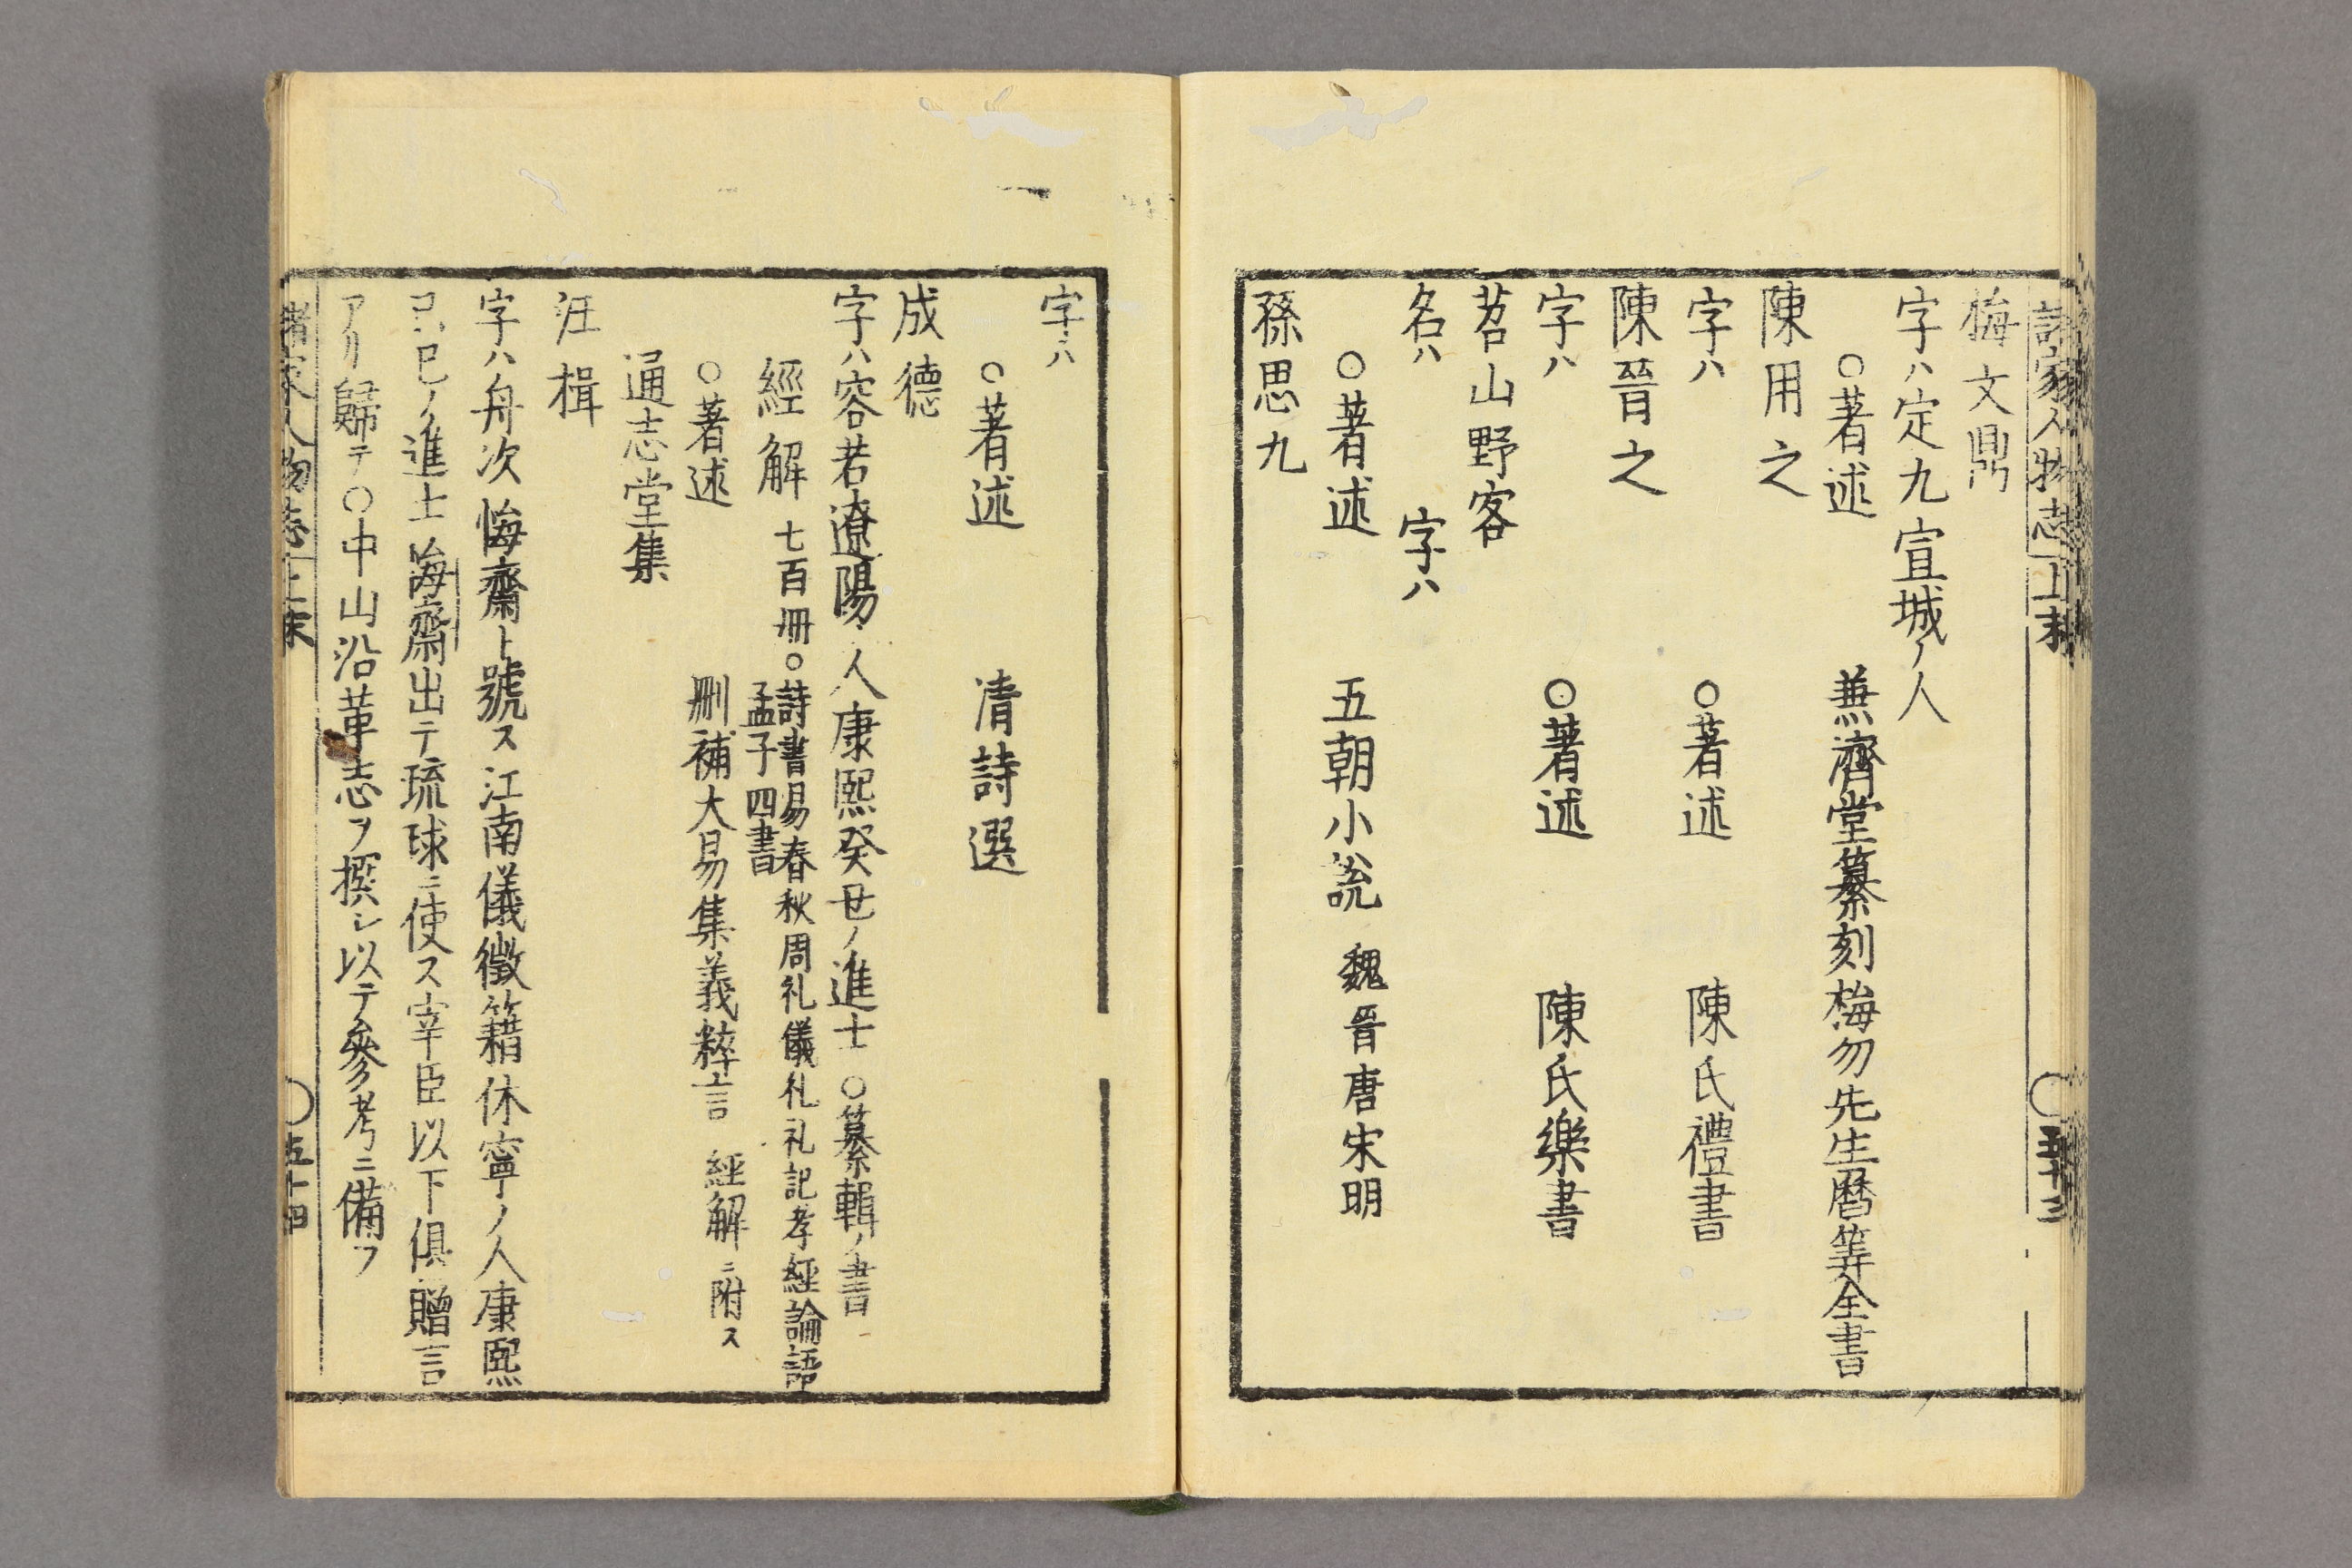 諸家人物志 上末 〇 五十三
梅文鼎
字ハ定九宣城ノ人
〇著述 兼濟堂纂刻梅勿先生曆筭全書
陳用之
字ハ 〇著述 陳氏禮書
陳晉之
字ハ 〇著述 陳氏樂書
苕山野客
名ハ 字ハ
〇著述 五朝小說 魏晉唐宋明
孫思九
字ハ
〇著述 清詩選
成德
字ハ容若遼陽ノ人康熙癸丑ノ進士〇纂輯ノ書
經解 七百冊〇詩書易春秋周礼儀礼礼記孝經論語
孟子四書
〇著述 刪補大易集義粹言 經解ニ附ス
通志堂集
汪楫
字ハ舟次悔齋ト號ス江南儀徵籍休寧ノ人康熙
己巳ノ進士海齋出テ琉球ニ使ス宰臣以下俱贈言
アリ歸テ〇中山沿革志ヲ撰シ以テ參考ニ備フ
諸家人物志 上末 〇 五十四